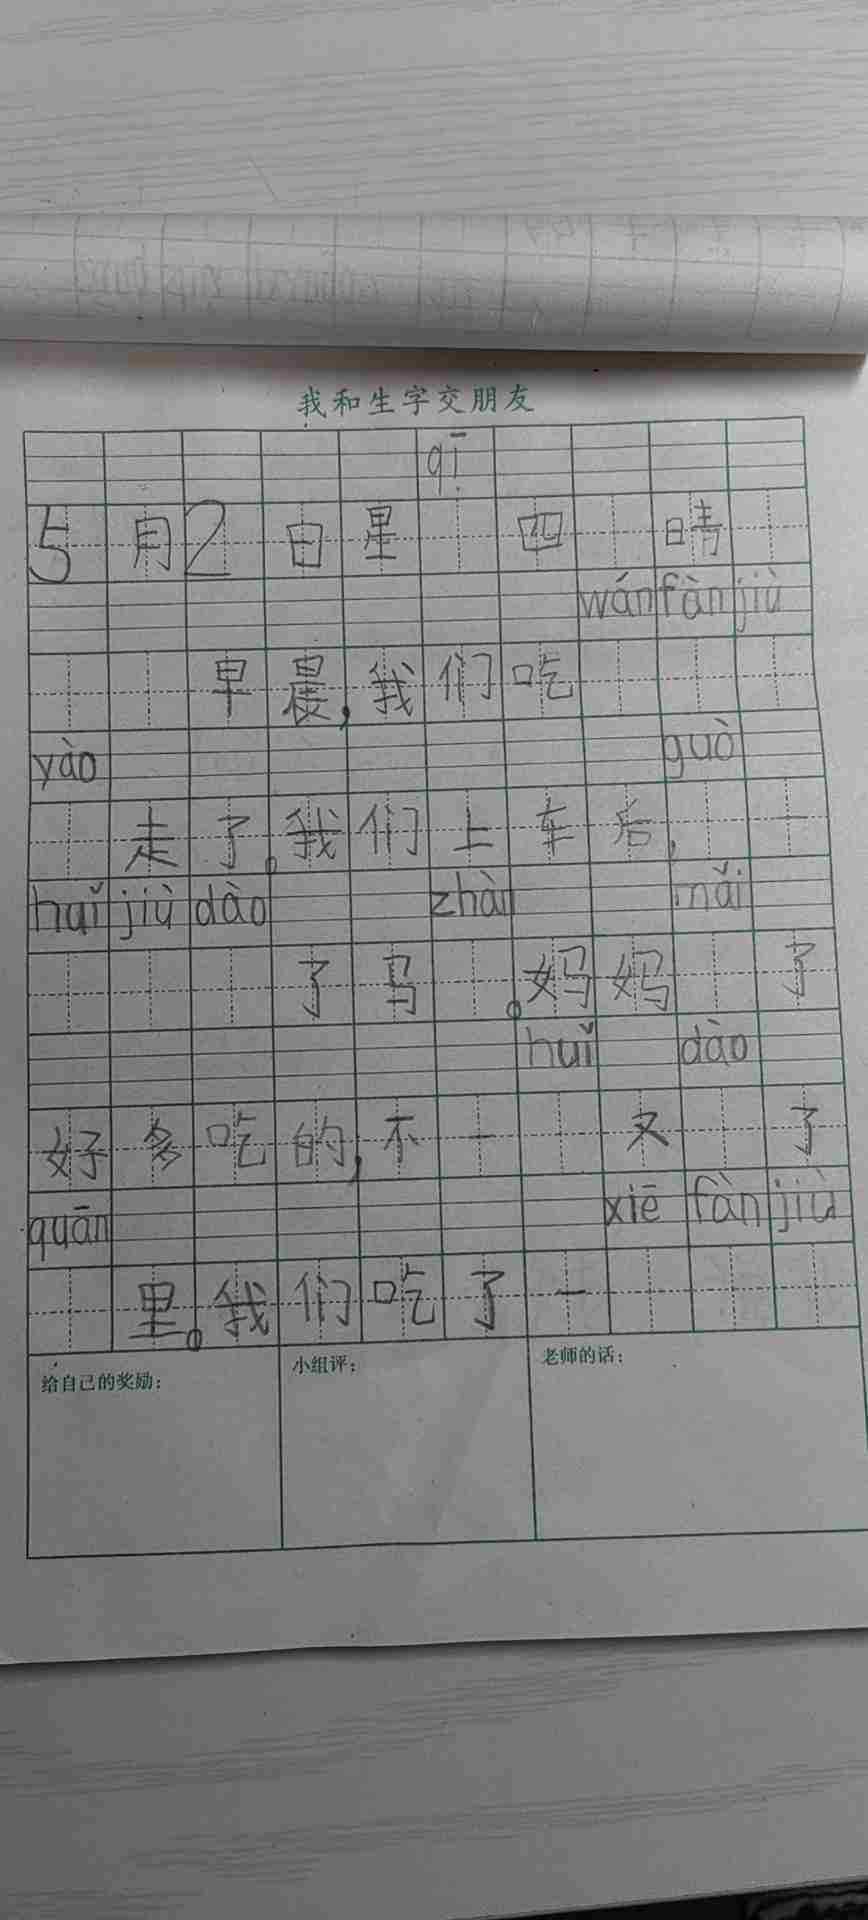 我和生字交朋友
qī
5月2日星 四 晴
wán fàn jiù
早晨,我们吃
yào guò
走了。我们上车后, 一
huǐ jiù dào zhàn mǎi
了马 。妈妈 了
huǐ dào
好多吃的,不一 又 了
quān xiē fàn jiù
里。我们吃了一
给自己的奖励: 小组评: 老师的话: